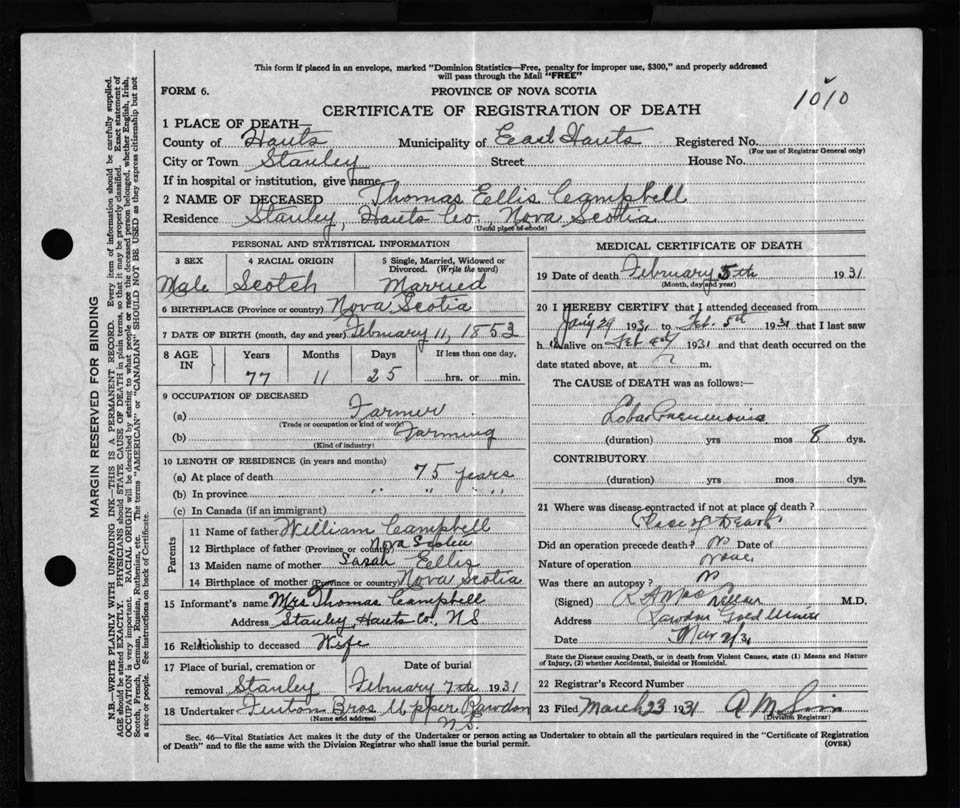 This form if placed in an envelope, marked "Dominion Statistics—Free, penalty for improper use, $300," and properly addressed
will pass through the Mail "FREE"
FORM 6.
PROVINCE OF NOVA SCOTIA
1010
CERTIFICATE OF REGISTRATION OF DEATH
1 PLACE OF DEATH—
County of Hants Municipality of East Hants Registered No.
(For use of Registrar General only)
City or Town Stanley Street House No.
If in hospital or institution, give name
2 NAME OF DECEASED Thomas Ellis Campbell
Residence Stanley, Hants Co, Nova Scotia
(Usual place of abode)
PERSONAL AND STATISTICAL INFORMATION
3 SEX 4 RACIAL ORIGIN 5 Single, Married, Widowed or
Divorced. (Write the word)
Male Scotch Married
6 BIRTHPLACE (Province or country) Nova Scotia
7 DATE OF BIRTH (month, day and year) February 11, 1853
8 AGE IN Years Months Days If less than one day,
77 11 25 hrs. or min.
9 OCCUPATION OF DECEASED
(a) Farmer
(Trade or occupation or kind of work)
(b) Farming
(Kind of industry)
10 LENGTH OF RESIDENCE (in years and months)
(a) At place of death 75 years
(b) In province " " " "
(c) In Canada (if an immigrant)
Parents
11 Name of father William Campbell
12 Birthplace of father (Province or country) Nova Scotia
13 Maiden name of mother Sarah Ellis
14 Birthplace of mother (Province or country) Nova Scotia
15 Informant's name Mrs Thomas Campbell
Address Stanley, Hants Co, NS
16 Relationship to deceased Wife
17 Place of burial, cremation or Date of burial
removal Stanley February 7th 1931
18 Undertaker Fenton Bros Upper Rawdon
(Name and address) N.S.
MEDICAL CERTIFICATE OF DEATH
19 Date of death February 5th 1931
(Month, day and year)
20 I HEREBY CERTIFY that I attended deceased from
Jany 29 1931 to Feb. 5th 1931 that I last saw
h alive on Feb 4th 1931 and that death occurred on the
date stated above, at ? m.
The CAUSE of DEATH was as follows:—
Lobar Pneumonia
(duration) yrs mos 8 dys.
CONTRIBUTORY
(duration) yrs mos dys.
21 Where was disease contracted if not at place of death?
Place of Death
Did an operation precede death? No Date of
Nature of operation None
Was there an autopsy? No
(Signed) R A Mac M.D.
Address Rawdon Gold Mines
Date Mar 2/31
State the Disease causing Death, or in death from Violent Causes, state (1) Means and Nature
of Injury, (2) whether Accidental, Suicidal or Homicidal.
22 Registrar's Record Number
23 Filed March 23 1931 A M
(Division Registrar)
Sec. 46—Vital Statistics Act makes it the duty of the Undertaker or person acting as Undertaker to obtain all the particulars required in the "Certificate of Registration
of Death" and to file the same with the Division Registrar who shall issue the burial permit. (OVER)
MARGIN RESERVED FOR BINDING
N.B.—WRITE PLAINLY WITH UNFADING INK—THIS IS A PERMANENT RECORD. Every item of information should be carefully supplied.
AGE should be stated EXACTLY. PHYSICIANS should STATE CAUSE OF DEATH in plain terms, so that it may be properly classified. Exact statement of
OCCUPATION is very important. RACIAL ORIGIN will be described by stating to what people or race the deceased person belonged, whether English, Irish,
Scotch, French, German, Russian, Ruthenian, etc. The terms "AMERICAN" or "CANADIAN" SHOULD NOT BE USED as they express citizenship but not
a race or people. See instructions on back of Certificate.